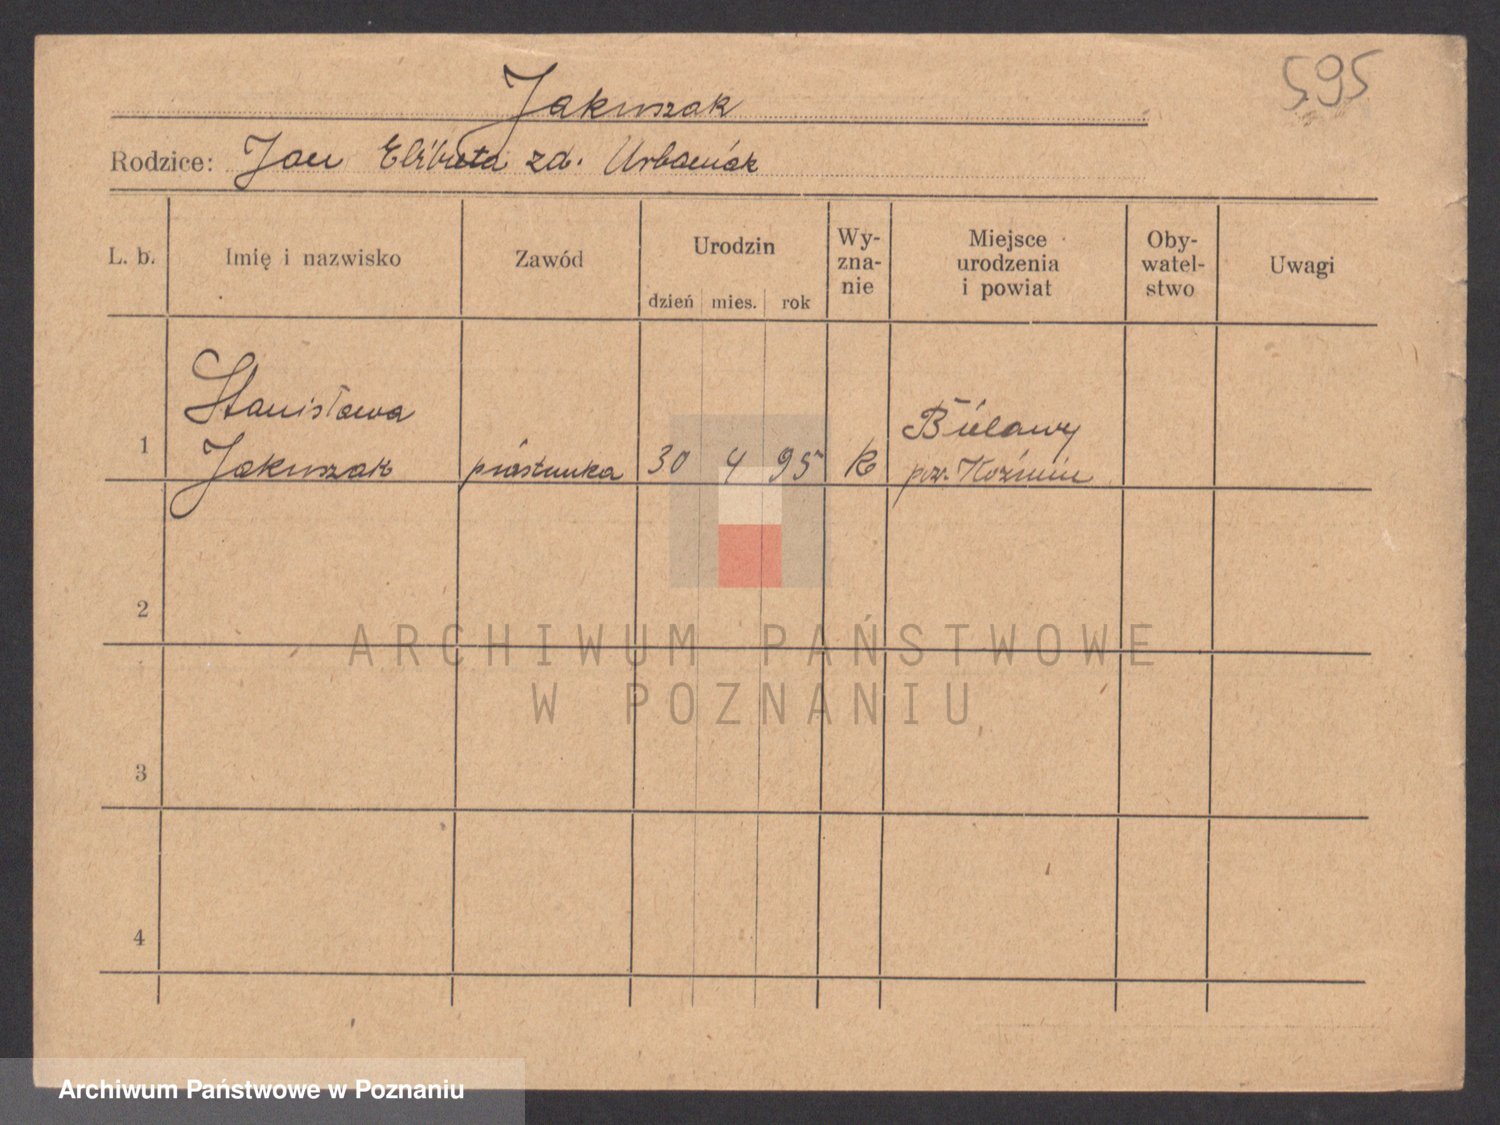 595
Jakuszak
Rodzice: Jan Elżbieta zd. Urbaniak
L. b.
Imię i nazwisko
Zawód
Urodzin
dzień mies. rok
Wy-
zna-
nie
Miejsce
urodzenia
i powiat
Oby-
watel-
stwo
Uwagi
1
Stanisława
Jakuszak
piastunka
30 4 95
k
Bielawy
pow. Koźmin
2
3
4
ARCHIWUM PAŃSTWOWE
W POZNANIU
Archiwum Państwowe w Poznaniu